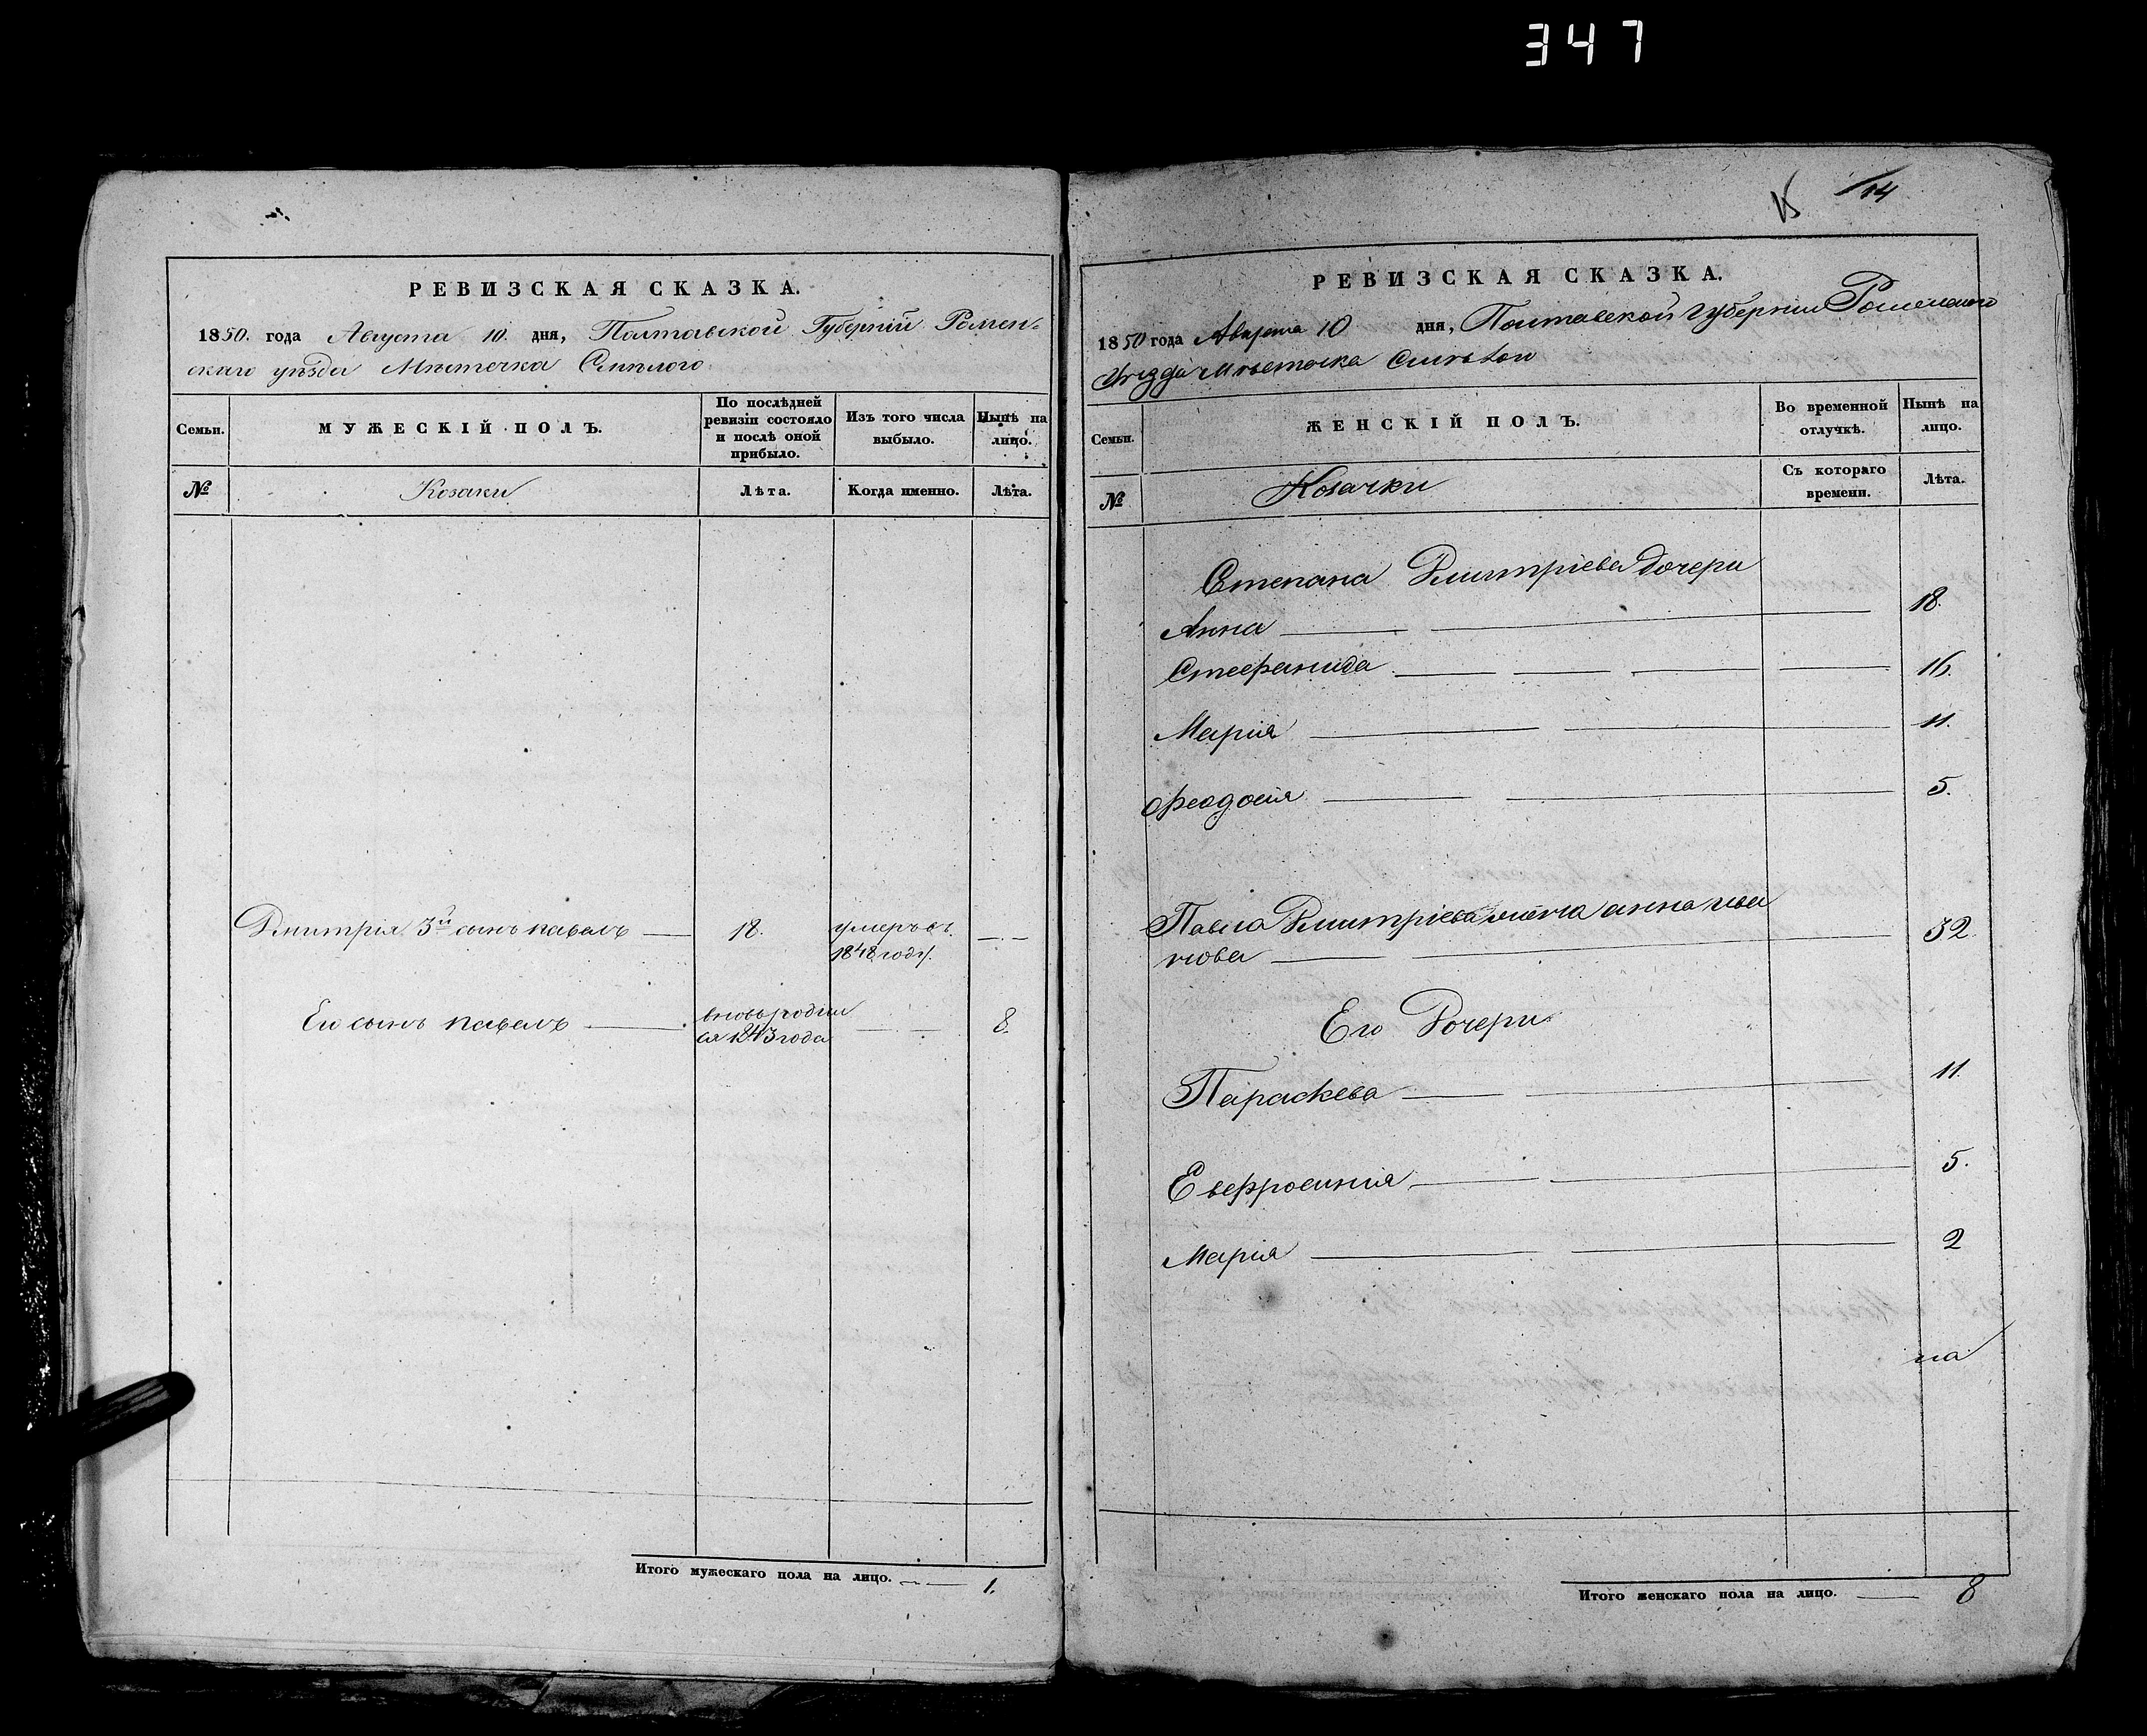 347
РЕВИЗСКАЯ СКАЗКА.
1850. года Августа 10. дня, Полтавской Губерній Ромен-
скаго уѣзда Мѣстечка Смѣлого
Семьи.
МУЖЕСКІЙ ПОЛЪ.
По послѣдней ревизіи состояло и послѣ оной прибыло.
Изъ того числа выбыло.
Нынѣ на лицо.
№
Козаки
Лѣта.
Когда именно.
Лѣта.
Дмитрія 3й сынъ павелъ 18. умеръ въ
1848 году.
Его сынъ павелъ вновь родил 8.
ся 1843 года
Итого мужескаго пола на лицо. 1.
15 14
РЕВИЗСКАЯ СКАЗКА.
1850 года Августа 10 дня, Полтавской губернии Роменского
Уѣзда Мѣсточка
Семьи.
ЖЕНСКІЙ ПОЛЪ.
Во временной отлучкѣ.
Нынѣ на лицо.
№
Козачки
Съ котораго времени.
Лѣта.
Степана Дмитріева дочери
Анна 18.
Стефанида 16.
Марія 11.
Феодосія 5.
Павла Дмитріева жена анна
32.
Его Дочери
Параскева 11.
Евфросинія 5.
Марія 2
на
Итого женскаго пола на лицо. 8